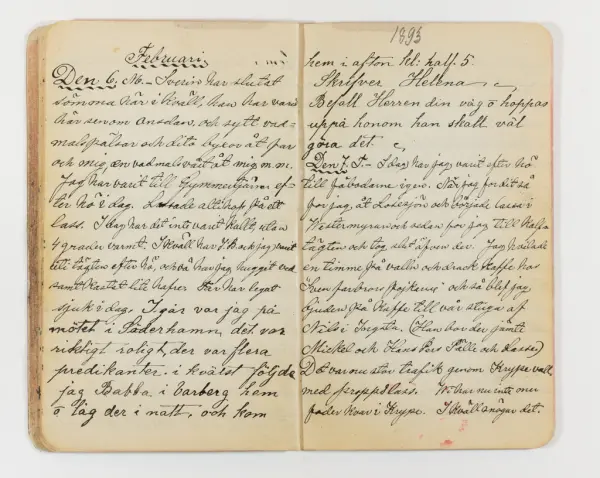 Februari
Den 6. M. – Sverin har slutat
sömma här i kväll, han har varit
här sen om Onsdan, och sytt vad-
malspälsar och dito byxor åt far
och mig, en vadmalsväst åt mig m.m.
Jag har varit till Gymmeltjärn ef-
ter hö i dag. Lassade alltihop på ett
lass. I dag har det inte varit kallt, utan
4 grader varmt. I kväll har J.B. och jag varit
till tägten efter hö, och så har jag huggit ved
samt hackat till hafre. Far har legat
sjuk i dag. I går var jag på
mötet i Söderhamn, det var
riktigt roligt, der var flera
predikanter. i kvälst följde
jag Babba i Varberg hem
o låg der i natt, och kom
1893
hem i afton kl: half. 5.
Skrifver Helena
Befall Herren din väg o hoppas
uppå honom han skall väl
göra det.
Den 7. T. – I dag har jag varit efter hö
till fäbodarne igen. När jag for dit så
for jag åt Losesjön och började lassa i
Westermyran och sedan for jag till
tägten och tog slut äfven der. Jag hvilade
en timme på valln och drack kaffe ho
"Sven farbrors pojkarne" och så blef jag
bjuden på kaffe till vår stuga af
Nils i Hegsta. (Han bor der jämte
Mickel och Hans Pers Pålle och Lasse)
Det var nu stor trafik genom Krype vall
med proppslass. Wi har nu inte mer
foder kvar i Krype. I kväll snögar det.